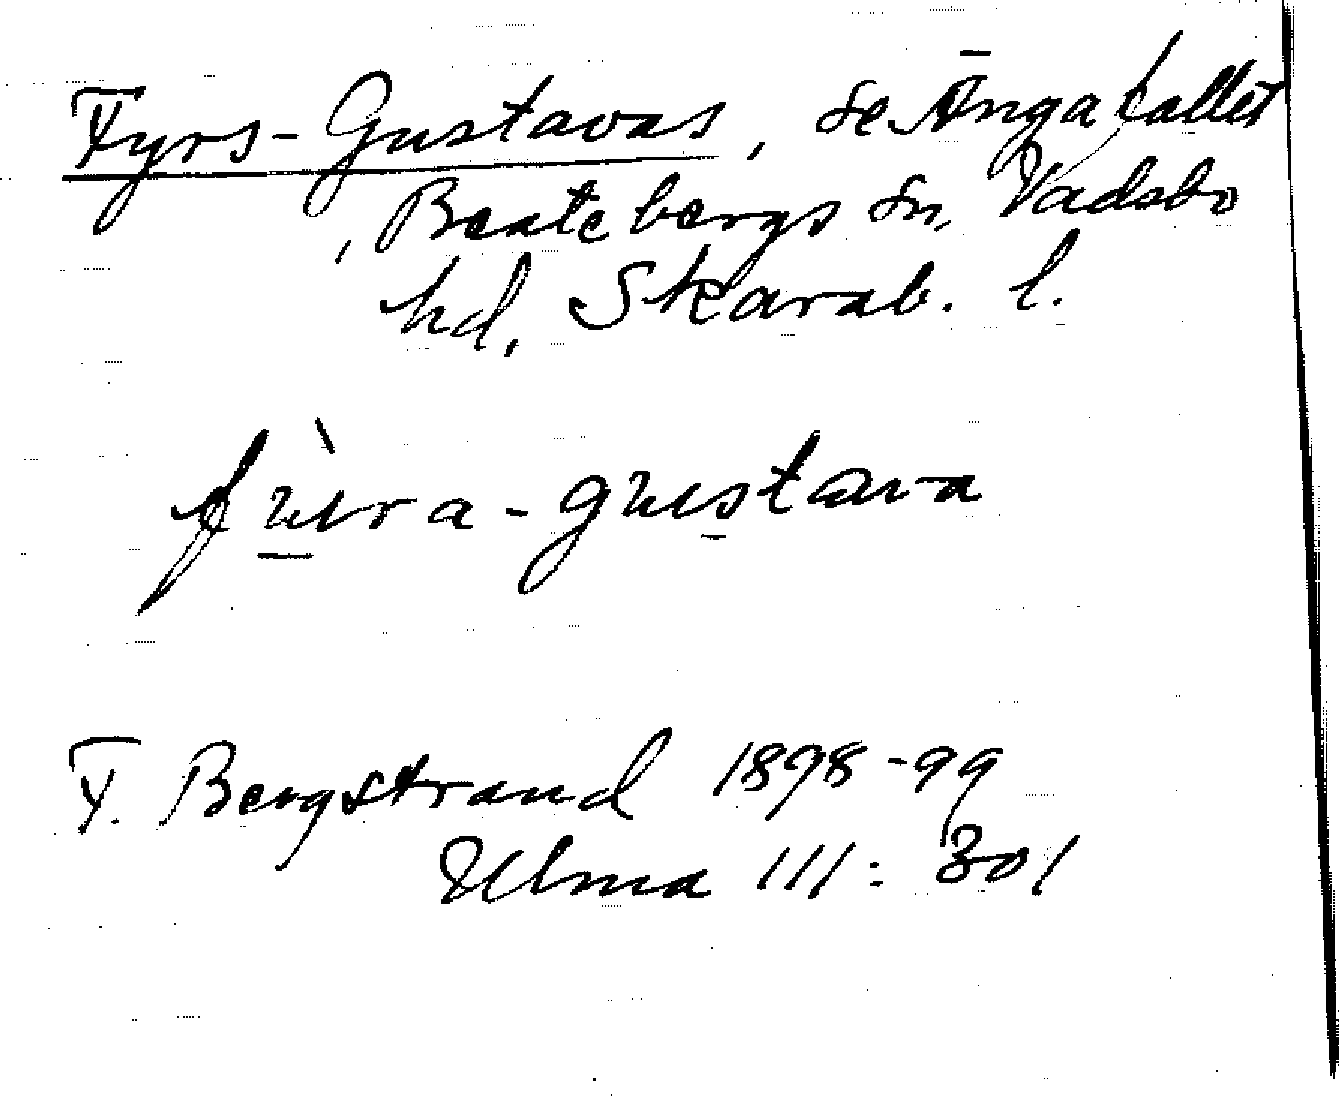 Fyrs-Gustavas, se Ängatallet
, Beatebergs sn, Vadsbo
hd, Skarab. l.
fùra-gustava
F. Bergstrand 1898-99
Ulma 111: 301